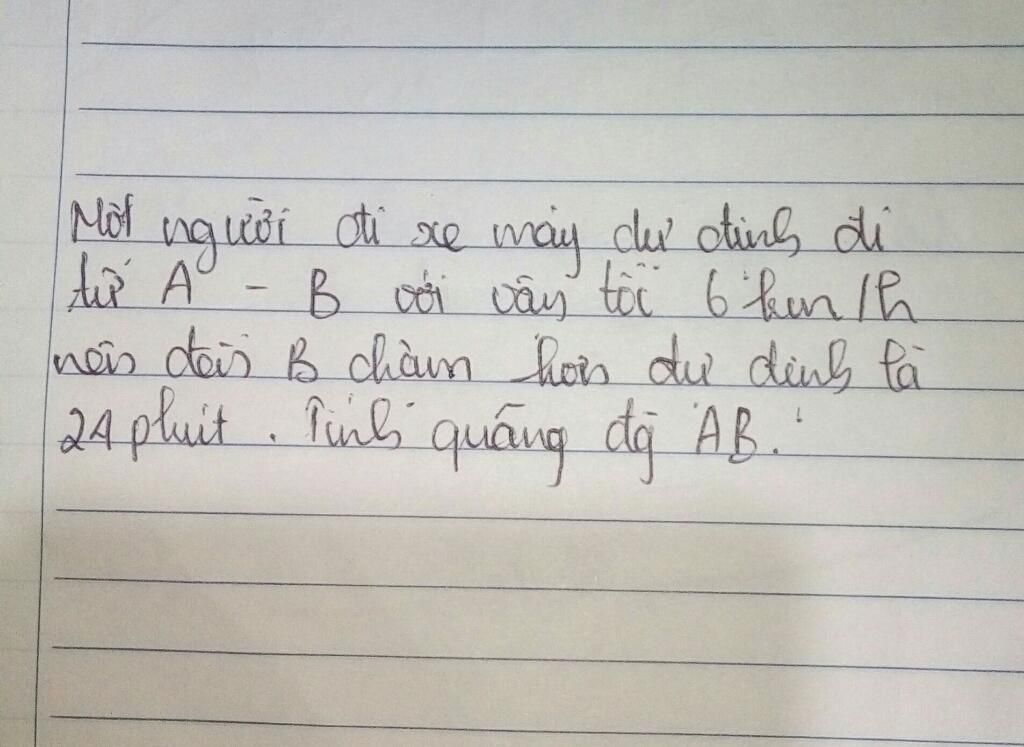 Một người đi xe máy dự định đi
từ A - B với vận tốc 6 km/h
nên đến B chậm hơn dự định là
24 phút. Tính quãng đg AB.